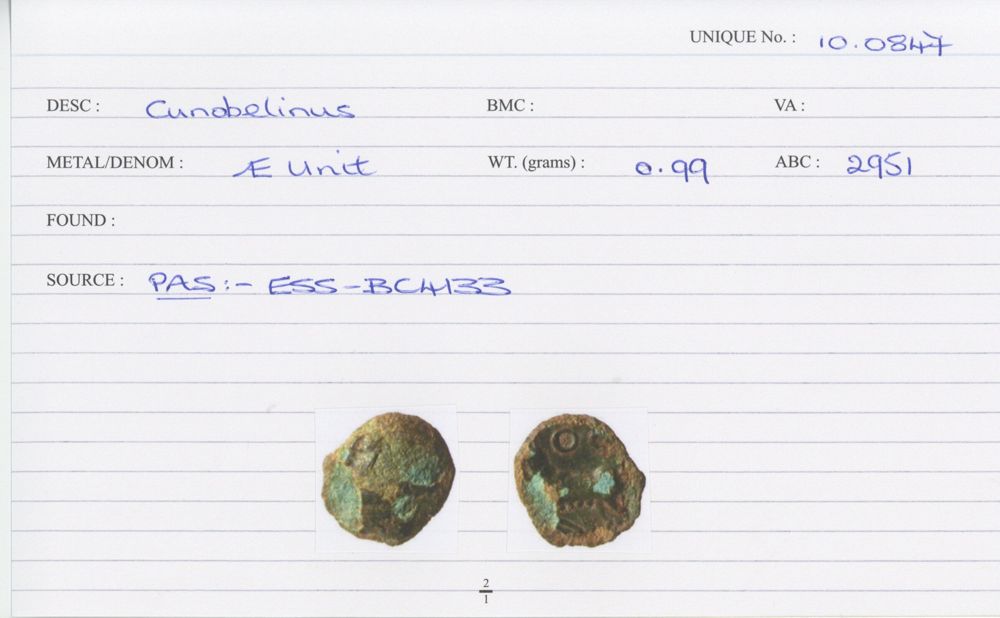 UNIQUE No. : 10.0847
DESC : Cunobelinus BMC : VA :
METAL/DENOM : Æ Unit WT. (grams) : 0.99 ABC : 2951
FOUND :
SOURCE : PAS:- ESS-BC4133
2
1